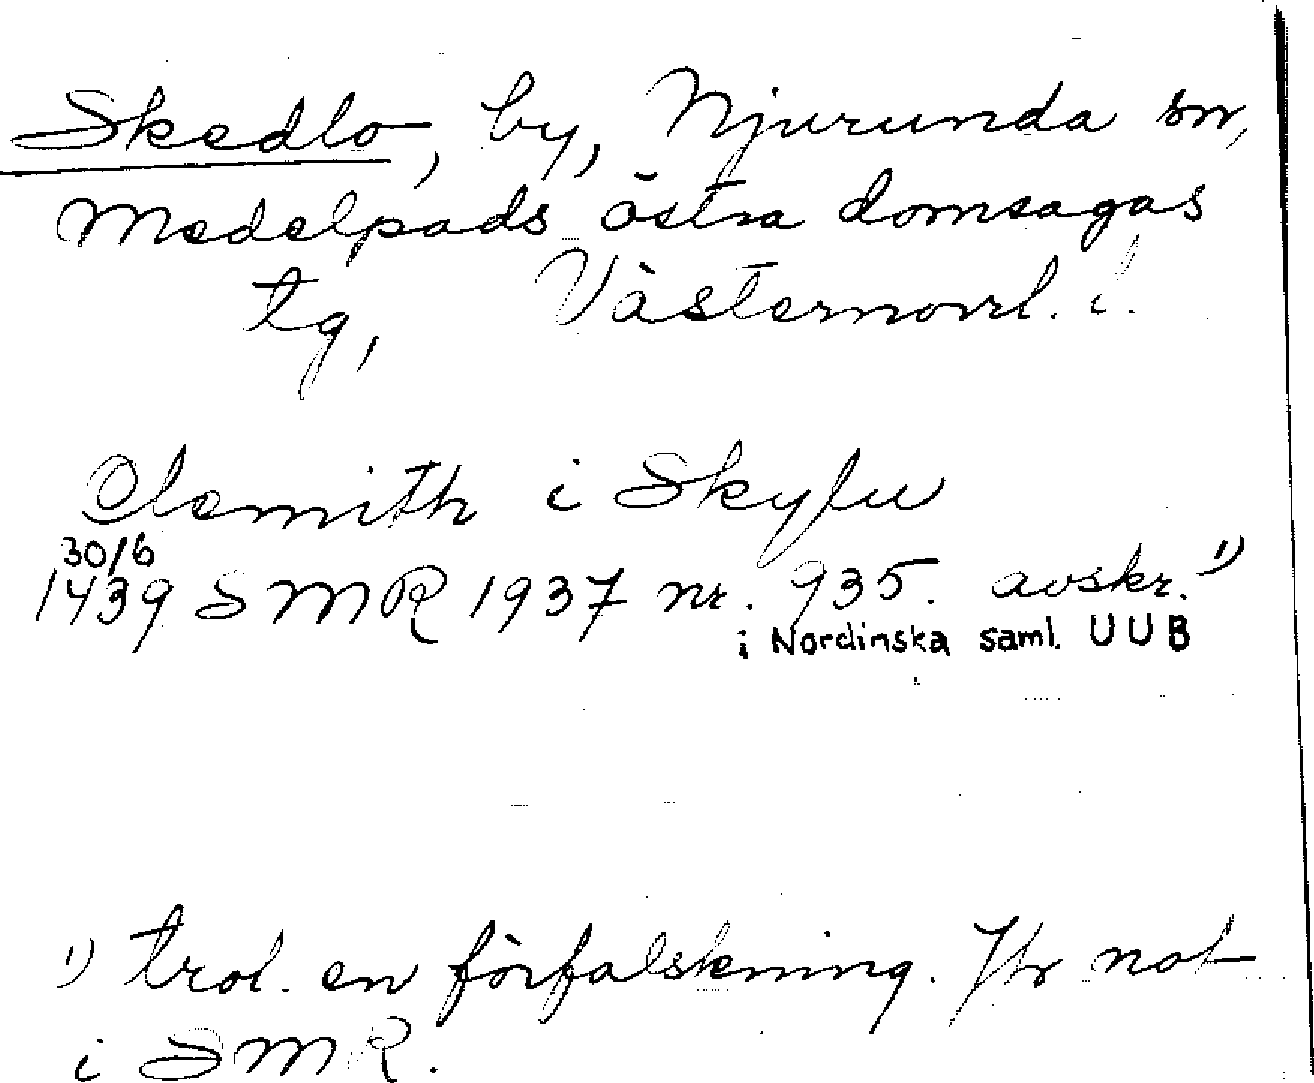 Skedlo, by, Njurunda sn,
Medelpads östra domsagas
tg, Västernorrl. l.
Clemith i Skylu
30/6
1439 SMR 1937 nr. 935. avskr. 1)
i Nordinska saml. UUB
1) trol. en förfalskning. Jfr not
i SMR.